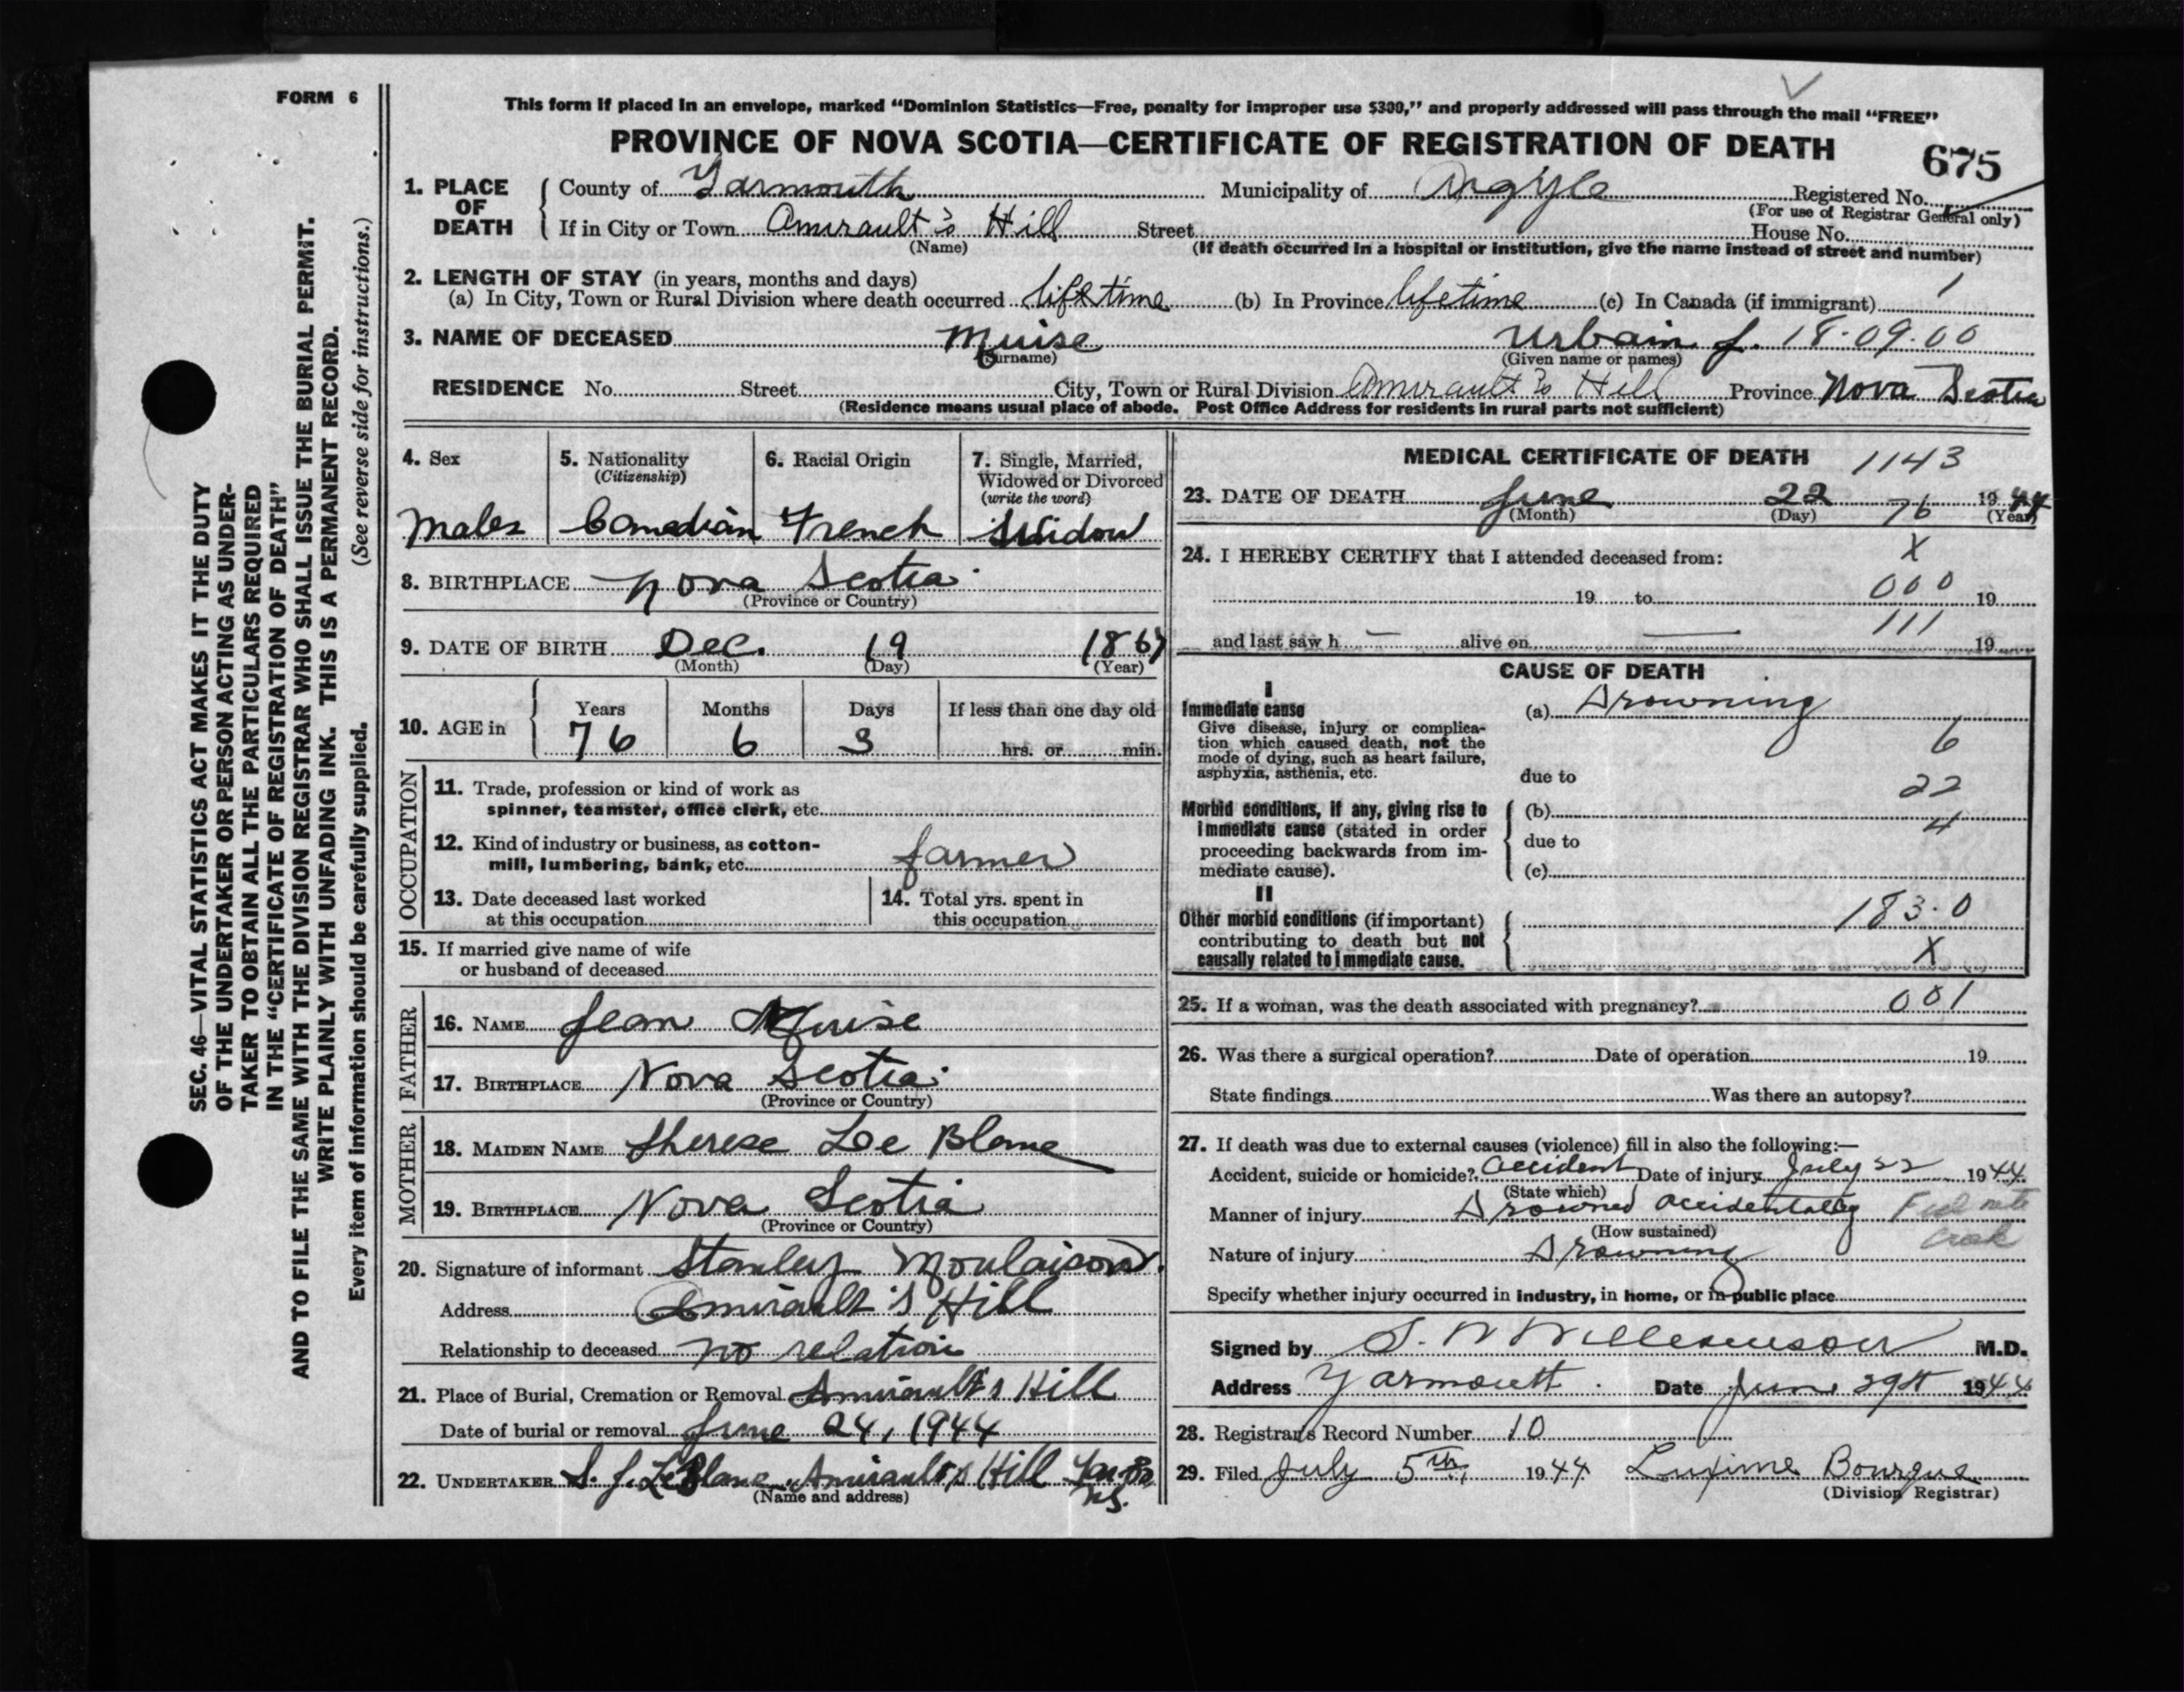 FORM 6
This form if placed in an envelope, marked “Dominion Statistics—Free, penalty for improper use $300,” and properly addressed will pass through the mail “FREE”
PROVINCE OF NOVA SCOTIA—CERTIFICATE OF REGISTRATION OF DEATH
675
1. PLACE OF DEATH County of Yarmouth Municipality of Argyle Registered No.
(For use of Registrar General only)
If in City or Town Amirault's Hill Street House No.
(Name) (If death occurred in a hospital or institution, give the name instead of street and number)
2. LENGTH OF STAY (in years, months and days)
(a) In City, Town or Rural Division where death occurred lifetime (b) In Province lifetime (c) In Canada (if immigrant) 1
3. NAME OF DECEASED Muise Urbain J. 18-09-00
(Surname) (Given name or names)
RESIDENCE No. Street City, Town or Rural Division Amirault's Hill Province Nova Scotia
(Residence means usual place of abode. Post Office Address for residents in rural parts not sufficient)
4. Sex 5. Nationality 6. Racial Origin 7. Single, Married,
(Citizenship) Widowed or Divorced
(write the word)
Male Canadian French Widow
8. BIRTHPLACE Nova Scotia
(Province or Country)
9. DATE OF BIRTH Dec. 19 1867
(Month) (Day) (Year)
10. AGE in Years Months Days If less than one day old
76 6 3 hrs. or min.
OCCUPATION
11. Trade, profession or kind of work as
spinner, teamster, office clerk, etc.
12. Kind of industry or business, as cotton-
mill, lumbering, bank, etc. farmer
13. Date deceased last worked 14. Total yrs. spent in
at this occupation this occupation
15. If married give name of wife
or husband of deceased
FATHER
16. NAME Jean Muise
17. BIRTHPLACE Nova Scotia
(Province or Country)
MOTHER
18. MAIDEN NAME Therese Le Blanc
19. BIRTHPLACE Nova Scotia
(Province or Country)
20. Signature of informant Stanley Moulaison
Address Amirault's Hill
Relationship to deceased no relation
21. Place of Burial, Cremation or Removal Amirault's Hill
Date of burial or removal June 24, 1944
22. UNDERTAKER S. J. LeBlanc, Amirault's Hill N.S.
(Name and address)
MEDICAL CERTIFICATE OF DEATH 1143
23. DATE OF DEATH June 22 76 1944
(Month) (Day) (Year)
24. I HEREBY CERTIFY that I attended deceased from: X
19 to 000 19
111
and last saw h — alive on — 19
CAUSE OF DEATH
I
Immediate cause (a) Drowning
Give disease, injury or complica-
tion which caused death, not the 6
mode of dying, such as heart failure,
asphyxia, asthenia, etc. due to 22
Morbid conditions, if any, giving rise to (b)
immediate cause (stated in order 4
proceeding backwards from im- due to
mediate cause). (c)
II
Other morbid conditions (if important) 183.0
contributing to death but not
causally related to immediate cause. X
25. If a woman, was the death associated with pregnancy? 001
26. Was there a surgical operation? Date of operation 19
State findings Was there an autopsy?
27. If death was due to external causes (violence) fill in also the following:—
Accident, suicide or homicide? Accident Date of injury July 22 1944
(State which)
Manner of injury Drowned accidentally
(How sustained)
Nature of injury Drowning
Specify whether injury occurred in industry, in home, or in public place
Signed by M.D.
Address Yarmouth. Date June 29th 1944
28. Registrar's Record Number 10
29. Filed July 5th, 1944 Luxime Bourque
(Division Registrar)
SEC. 46—VITAL STATISTICS ACT MAKES IT THE DUTY
OF THE UNDERTAKER OR PERSON ACTING AS UNDER-
TAKER TO OBTAIN ALL THE PARTICULARS REQUIRED
IN THE “CERTIFICATE OF REGISTRATION OF DEATH”
AND TO FILE THE SAME WITH THE DIVISION REGISTRAR WHO SHALL ISSUE THE BURIAL PERMIT.
WRITE PLAINLY WITH UNFADING INK. THIS IS A PERMANENT RECORD.
Every item of information should be carefully supplied. (See reverse side for instructions.)